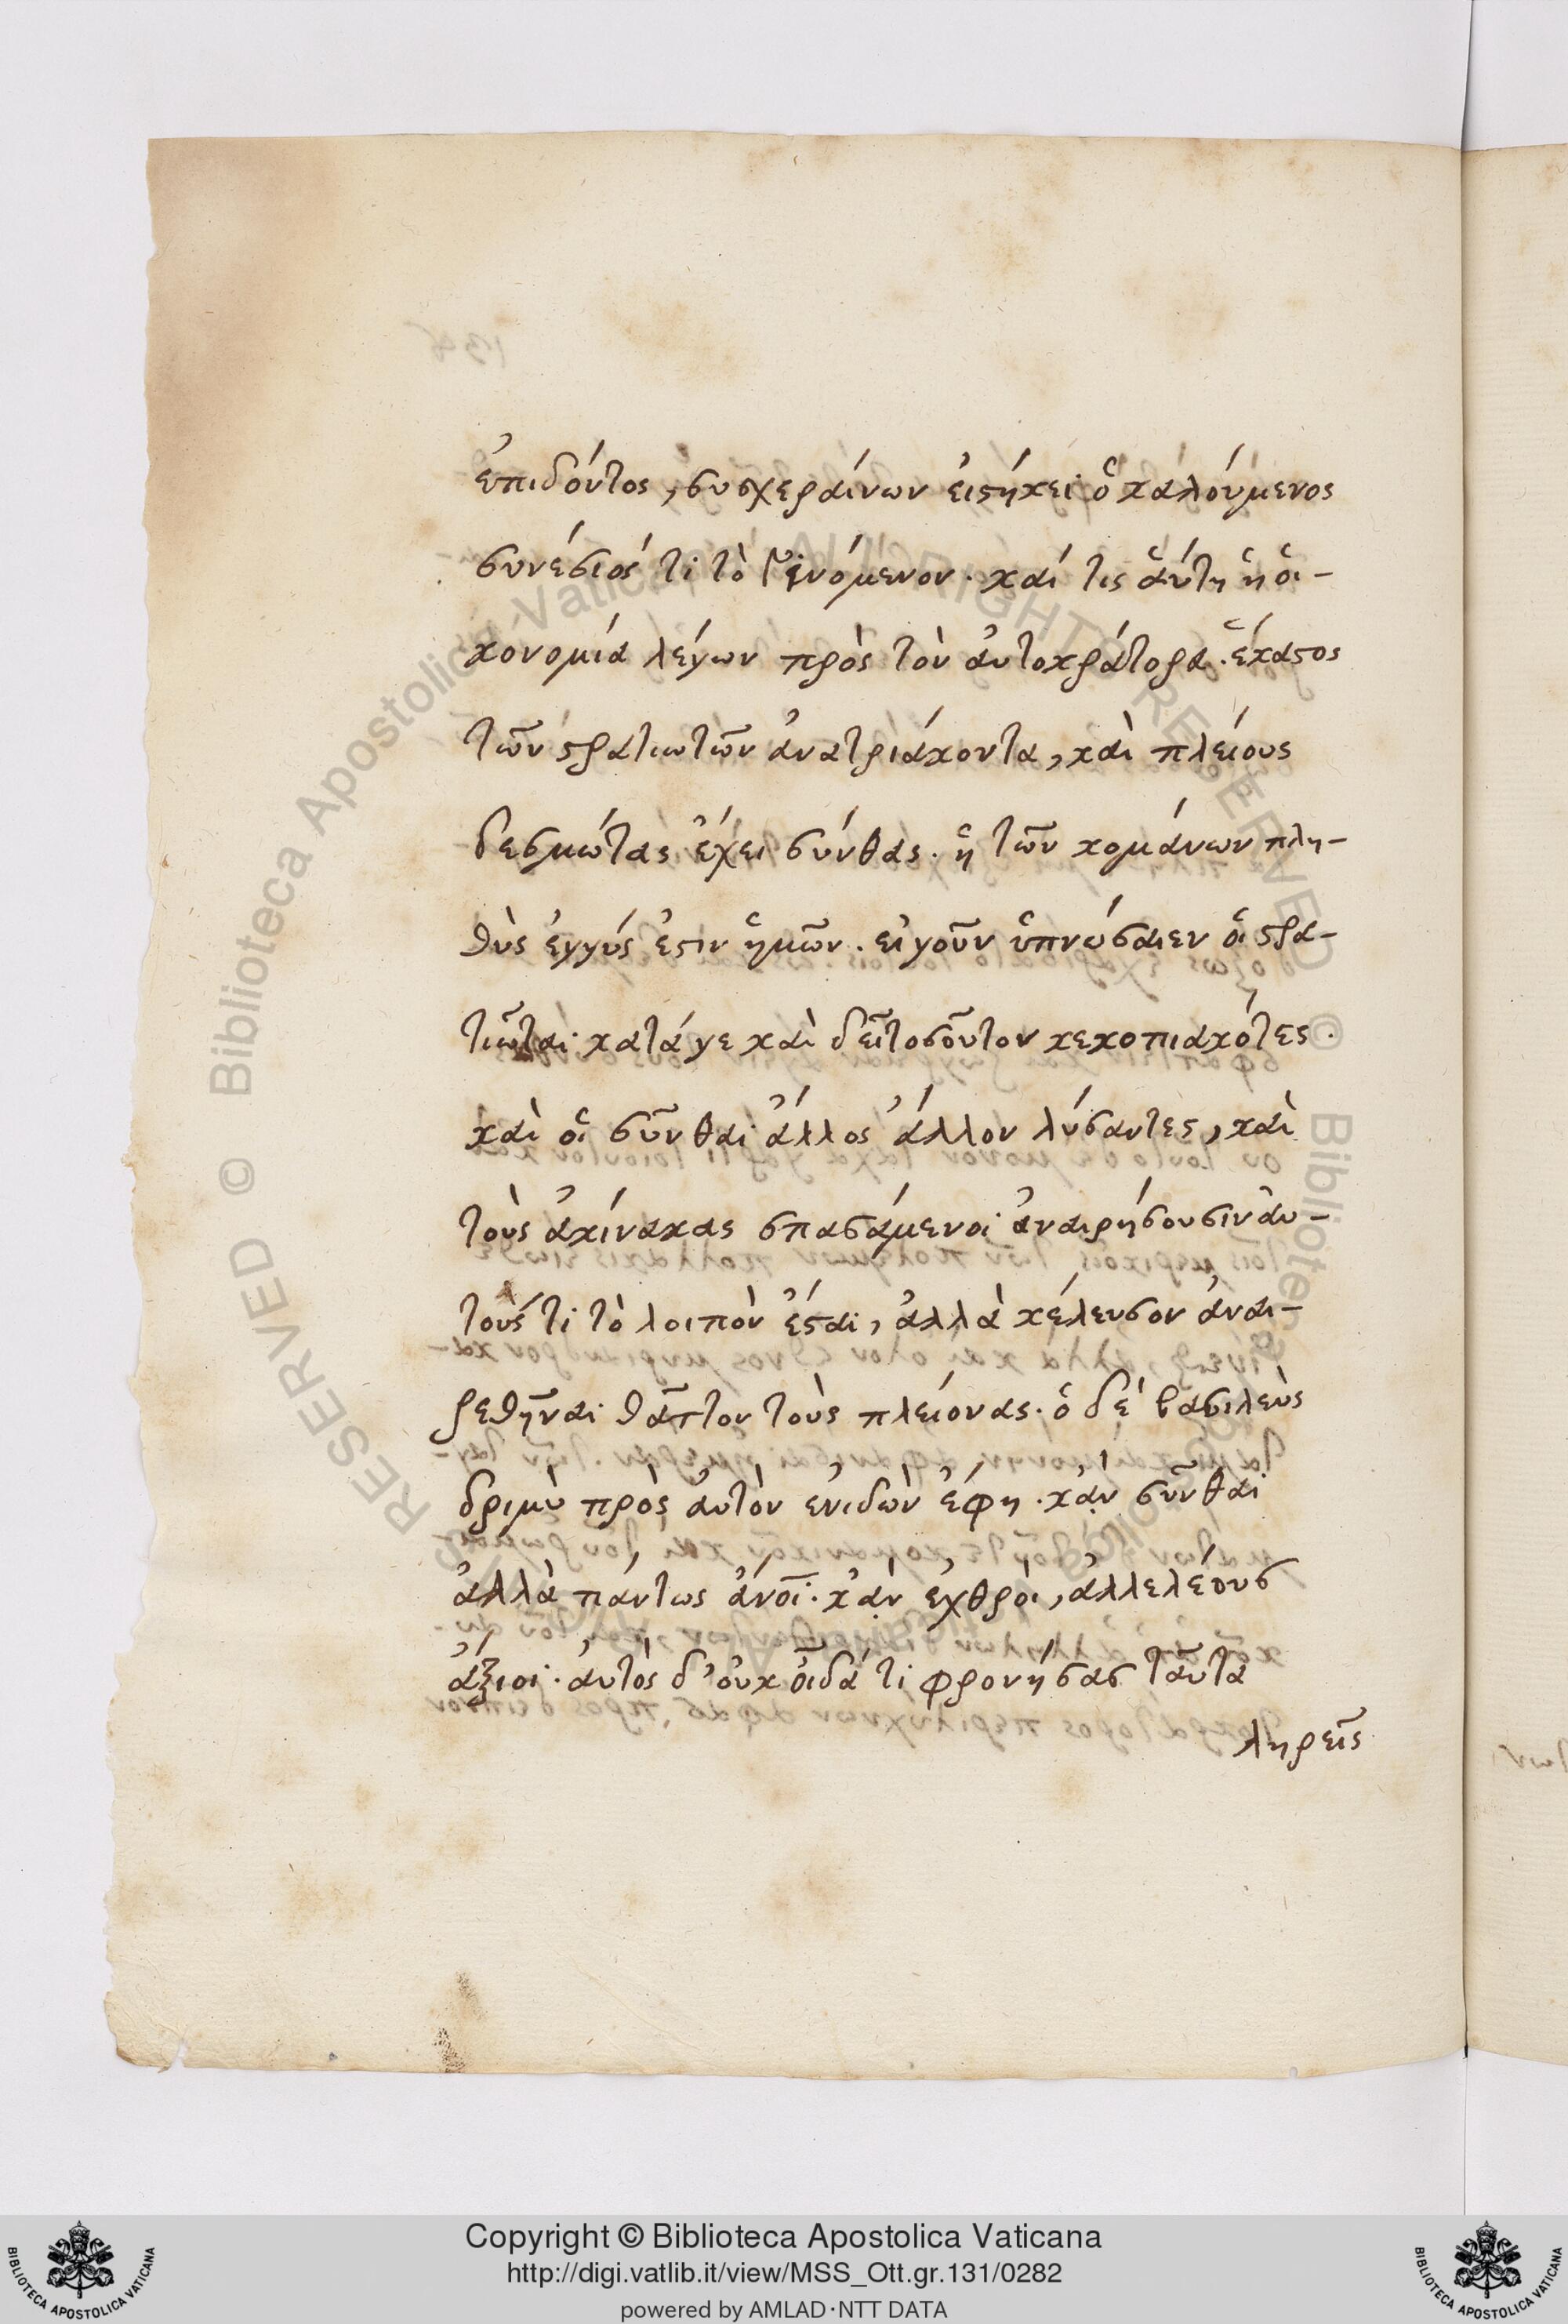 ἐπιδόντος, δυσχεραίνων εἰστήκει ὁ καλούμενος
συνέσιός τί τὸ γινόμενον. καί τις ἁύτη ἡ ὁι-
κονομία λέγων πρὸς τὸν ἀυτοκράτορα. ἕκαστος
τῶν στρατιωτῶν ἀνατριάκοντα, καὶ πλείους
δεσμώτας ἔχει σύνθας. ἡ τῶν κομάνων πλη-
θὺς ἐγγύς ἐστιν ἡμῶν. ει γοῦν ὑπνώσαιεν ὁι στρα-
τιῶται κατά γε καὶ δεῖ τοσοῦτον κεκοπιακότες.
καὶ ὁι σύνθαι ἄλλος ἄλλον λύσαντες, καὶ
τοὺς ἀκίνακας σπασάμενοι ἀναιρήσουσιν ἀυ-
τούς τί τὸ λοιπὸν ἔσται, ἀλλὰ κέλευσον ἀναι-
ρεθῆναι θᾶττον τοὺς πλείονας. ὁ δὲ βασιλεὺς
δριμὺ πρὸς ἀυτὸν ἐνιδὼν ἔφη. κἂν σύνθαι
ἀλλὰ πάντως ἄνοι. κἂν ἐχθροὶ, ἀλλ ελέους
ἄξιοι. ἀυτὸς δ' ὀυκ ὀῖδά τί φρονήσας ταῦτα
ληρεῖς
Copyright © Biblioteca Apostolica Vaticana
http://digi.vatlib.it/view/MSS_Ott.gr.131/0282
powered by AMLAD·NTT DATA
BIBLIOTECA APOSTOLICA VATICANA
BIBLIOTECA APOSTOLICA VATICANA